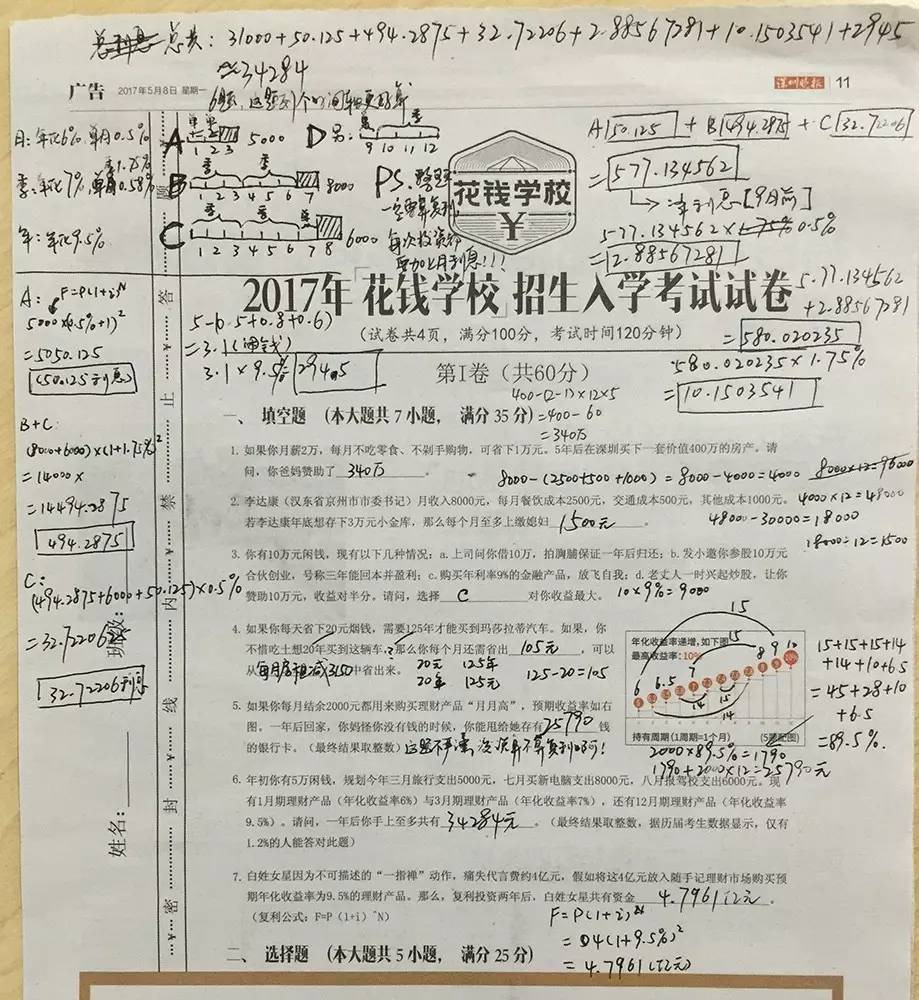 总共：31000+50.125+494.2875+32.7206+2.88567281+10.1503541+2945
≈34284
广告 2017年5月8日 星期一
深圳晚报 11
月：年化6% 单月0.5%
季1.75%
季：年化7% 单月0.58%
年：年化9.5%
A 1 2 3 5000
B 1 2 3 4 5 6 7 8000
C 1 2 3 4 5 6 7 8 6000
D 9 10 11 12
PS.
每次投资都
要加上月利息!!!
花钱学校
A 50.125 + B 494.2875 + C 32.72206
=577.134562
净利息[9月前]
577.134562×0.5%
=2.88567281
577.134562
+2.88567281
=580.020235
580.020235×1.75%
=10.1503541
A: F=P(1+i)^N
5000×(0.5%+1)²
=5050.125
(50.125利息)
B+C:
(8000+6000)×(1+1.75%)²
=14000×
=14494.2875
494.2875
C:
(494.2875+6000+50.125)×0.5%
=32.72206
32.72206利息
5-(0.5+0.8+0.6)
=3.1(闲钱)
3.1×9.5%=2945
2017年「花钱学校」招生入学考试试卷
(试卷共4页，满分100分，考试时间120分钟)
第I卷（共60分）
400-(2-1)×12×5
=400-60
=340万
一、 填空题 （本大题共 7 小题， 满分 35 分）
1. 如果你月薪2万，每月不吃零食、不剁手购物，可省下1万元。5年后在深圳买下一套价值400万的房产。请
问，你爸妈赞助了 340万 。
8000-(2500+500+1000)=8000-4000=4000 8000×12=96000
2. 李达康（汉东省京州市市委书记）月收入8000元，每月餐饮成本2500元，交通成本500元，其他成本1000元。
若李达康年底想存下3万元小金库，那么每个月至多上缴媳妇 1500元 。
4000×12=48000
48000-30000=18000
18000÷12=1500
3. 你有10万元闲钱，现有以下几种情况：a.上司问你借10万，拍胸脯保证一年后归还；b.发小邀你参股10万元
合伙创业，号称三年能回本并盈利；c.购买年利率9%的金融产品，放飞自我；d.老丈人一时兴起炒股，让你
赞助10万元，收益对半分。请问，选择 C 对你收益最大。 10×9%=9000
4. 如果你每天省下20元烟钱，需要125年才能买到玛莎拉蒂汽车。如果，你
不惜吃土想20年买到这辆车，那么你每个月还需省出 105元 ，可以
从 每月房租减3150 中省出来。
20元 125年
20年 125元 125-20=105
5. 如果你每月结余2000元都用来购买理财产品“月月高”，预期收益率如右
图。一年后回家，你妈怪你没有钱的时候，你能甩给她存有 25790 钱
的银行卡。（最终结果取整数）这题不严谨，没说算不算复利啊！
年化收益率递增，如下图
最高收益率：10%
6 6.5 7 8 9 10
15 15 15 14 14
持有周期（1周期=1个月） （5题配图）
15+15+15+14
+14+10+6.5
=45+28+10
+6.5
=89.5%.
2000×89.5%=1790
1790+2000×12=25790元
6. 年初你有5万闲钱，规划今年三月旅行支出5000元，七月买新电脑支出8000元，八月报驾校支出6000元。现
有1月期理财产品（年化收益率6%）与3月期理财产品（年化收益率7%），还有12月期理财产品（年化收益率
9.5%）。请问，一年后你手上至多共有 34284元 。（最终结果取整数，据历届考生数据显示，仅有
1.2%的人能答对此题）
7. 白姓女星因为不可描述的“一指禅”动作，痛失代言费约4亿元，假如将这4亿元放入随手记理财市场购买预
期年化收益率为9.5%的理财产品。那么，复利投资两年后，白姓女星共有资金 4.7961亿元 。
（复利公式：F=P（1+i）^N）
F=P(1+i)^N
=4(1+9.5%)²
=4.7961(亿元)
二、 选择题 （本大题共 5 小题， 满分 25 分）
班级：
姓名：
密 封 线 内 禁 止 答 题